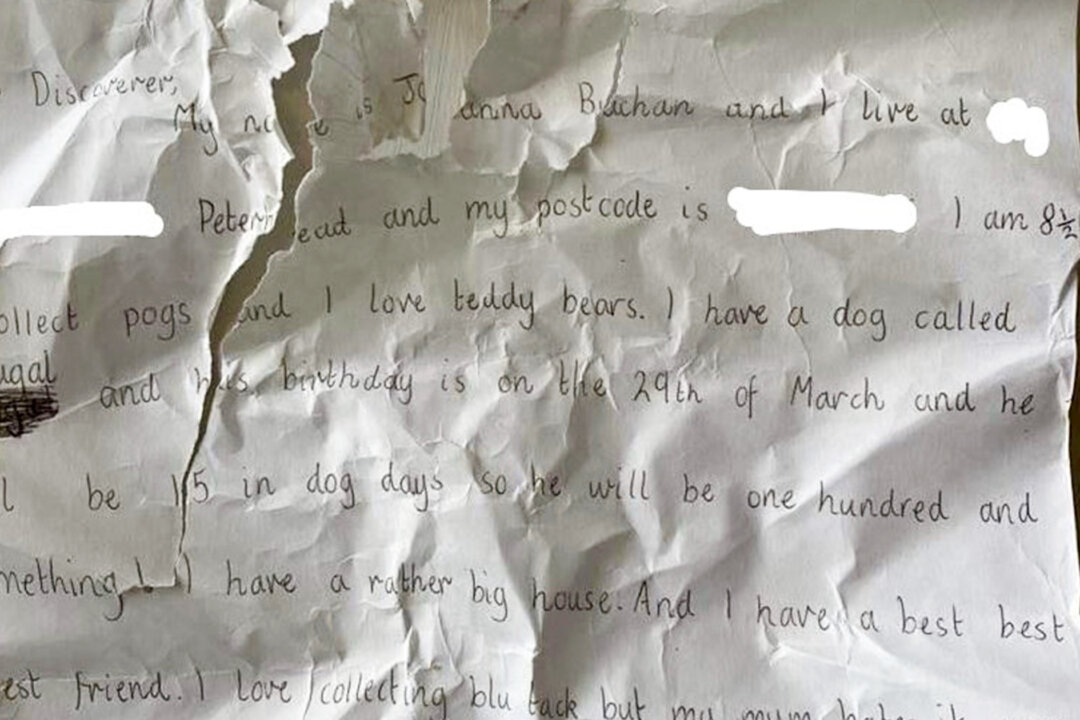 Discoverer,
My na e is Jo anna Buchan and I live at
Peterh ead and my postcode is I am 8½
ollect pogs and I love teddy bears. I have a dog called
ugal and his birthday is on the 29th of March and he
l be 15 in dog days so he will be one hundred and
mething! I have a rather big house. And I have a best best
est friend. I love collecting blu tack but my mum hates it